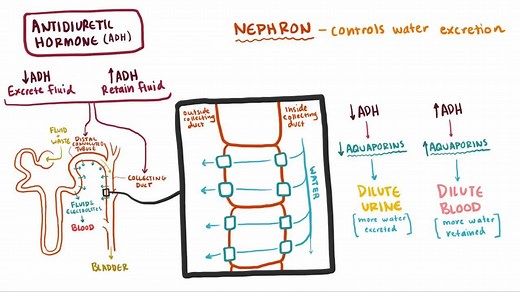 ANTIDIURETIC
HORMONE (ADH)
NEPHRON - controls water excretion
↓ADH
Excrete fluid
↑ADH
Retain fluid
FLUID
+ WASTE
DISTAL
CONVOLUTED
TUBULE
COLLECTING
DUCT
FLUID &
ELECTROLYTES
BLOOD
BLADDER
outside
collecting
duct
Inside
collecting
duct
WATER
↓ADH
↓AQUAPORINS
DILUTE
URINE
[more water
excreted]
↑ADH
↑AQUAPORINS
DILUTE
BLOOD
[more water
retained]